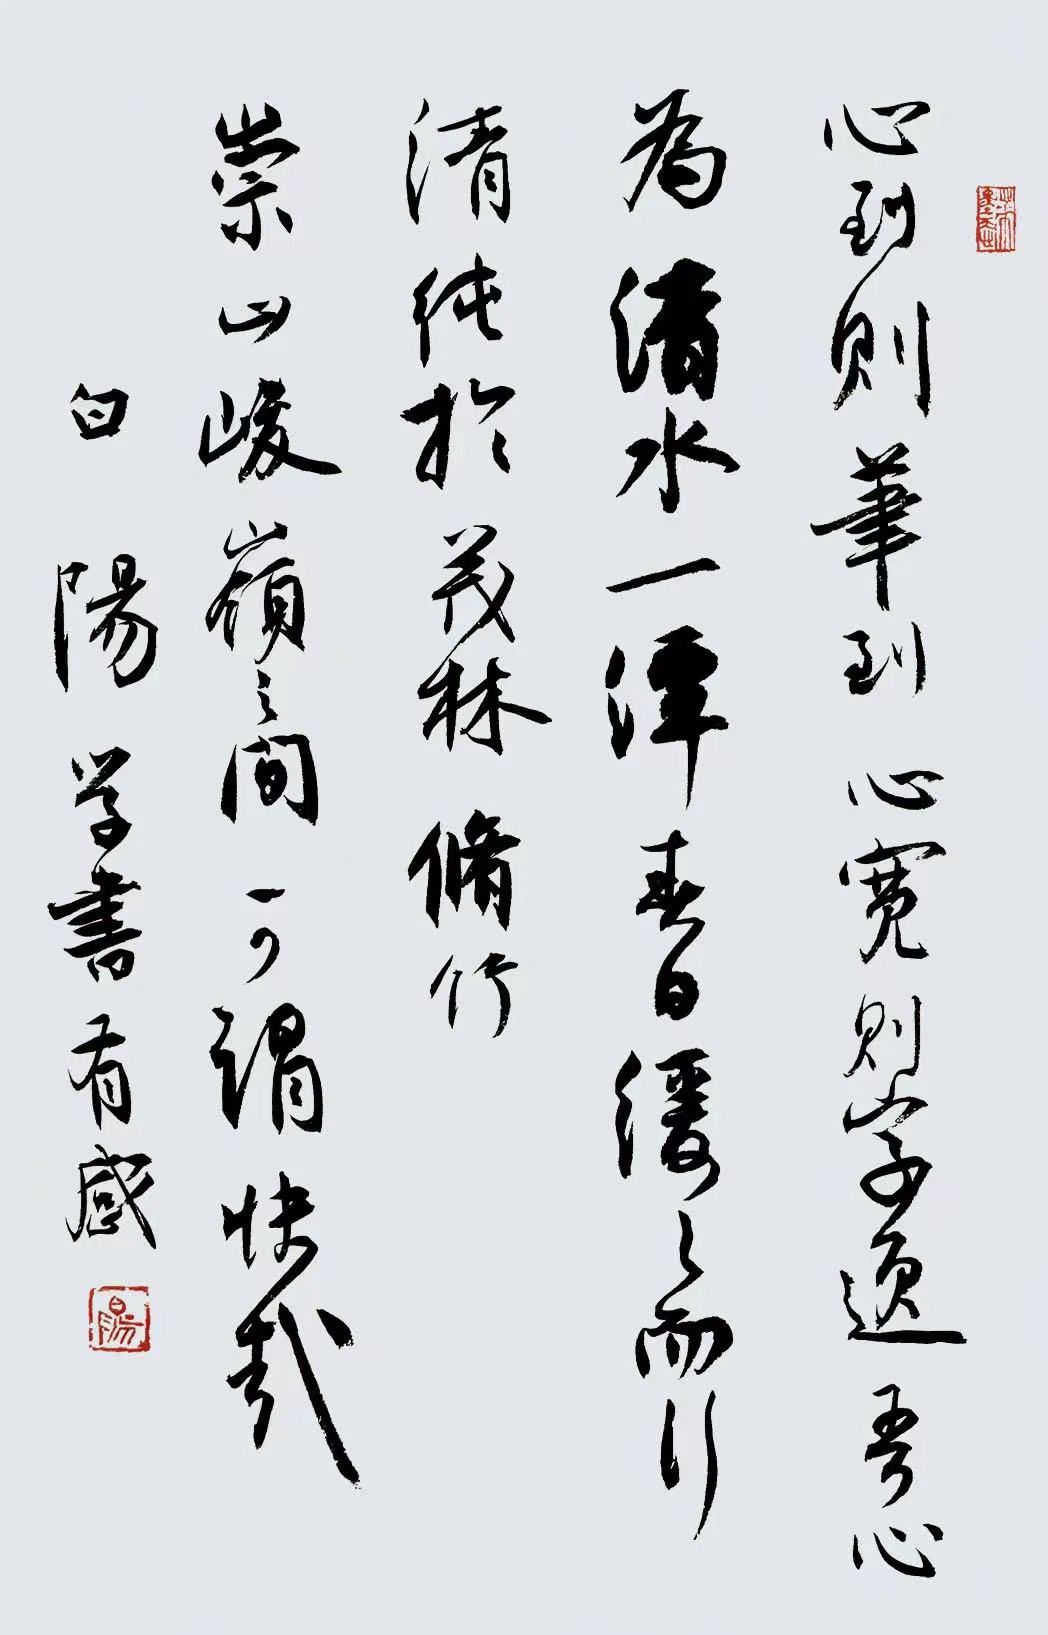 心到則筆到心宽則字逸吾心
為清水一潭春日缓缓而行
清純於茂林脩竹
崇山峻嶺之間可謂快哉
白陽学書有感